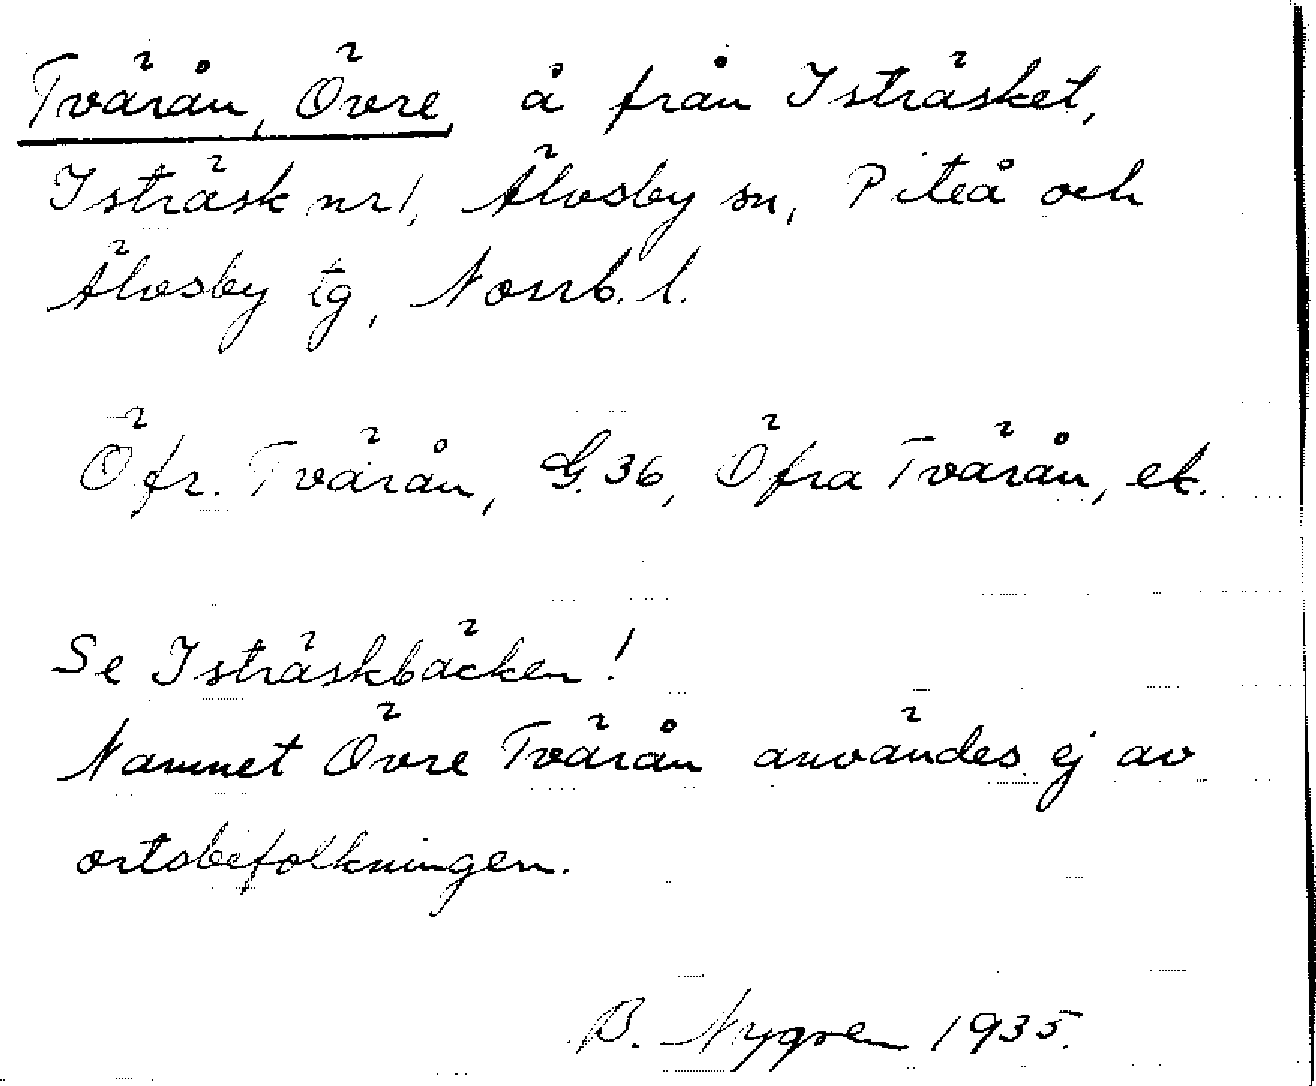 Tvärån, Övre, å från Isträsket,
Isträsk nr 1, Älvsby sn, Piteå och
Älvsby tg, Norrb. l.
Öfr. Tvärån, G. 36, Öfra Tvärån, ek.
Se Isträskbäcken!
Namnet Övre Tvärån användes ej av
ortsbefolkningen.
B. Nygren 1935.